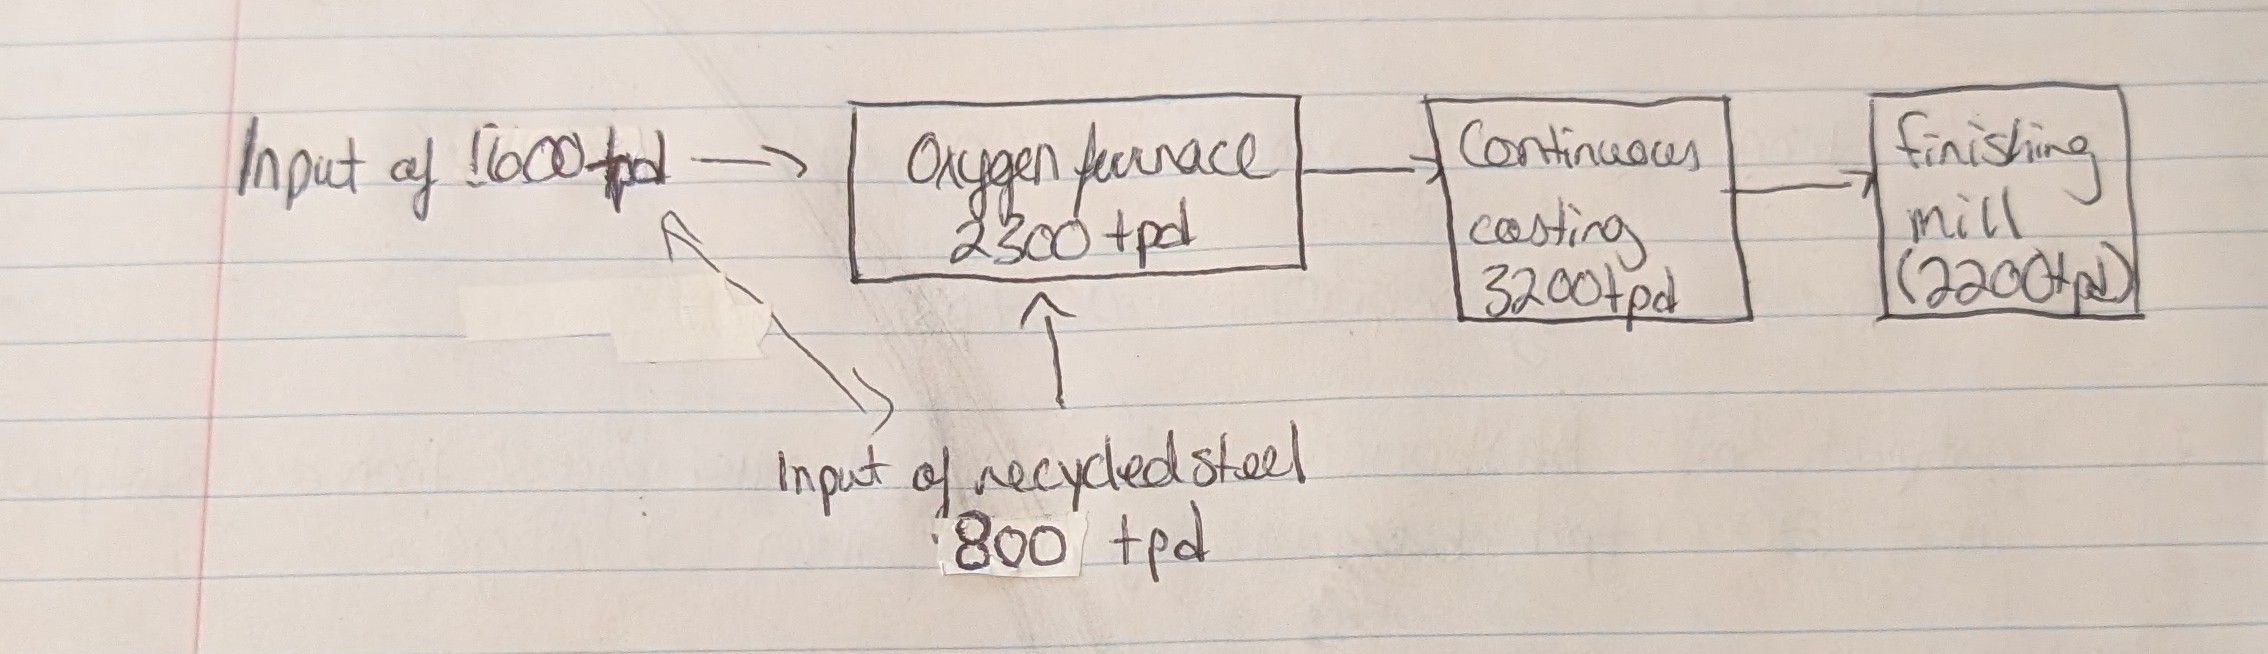 Input of 1600 tpd
Oxygen furnace
2300 tpd
Continuous
casting
3200tpd
finishing
mill
(2200tpd)
Input of recycled steel
800 tpd